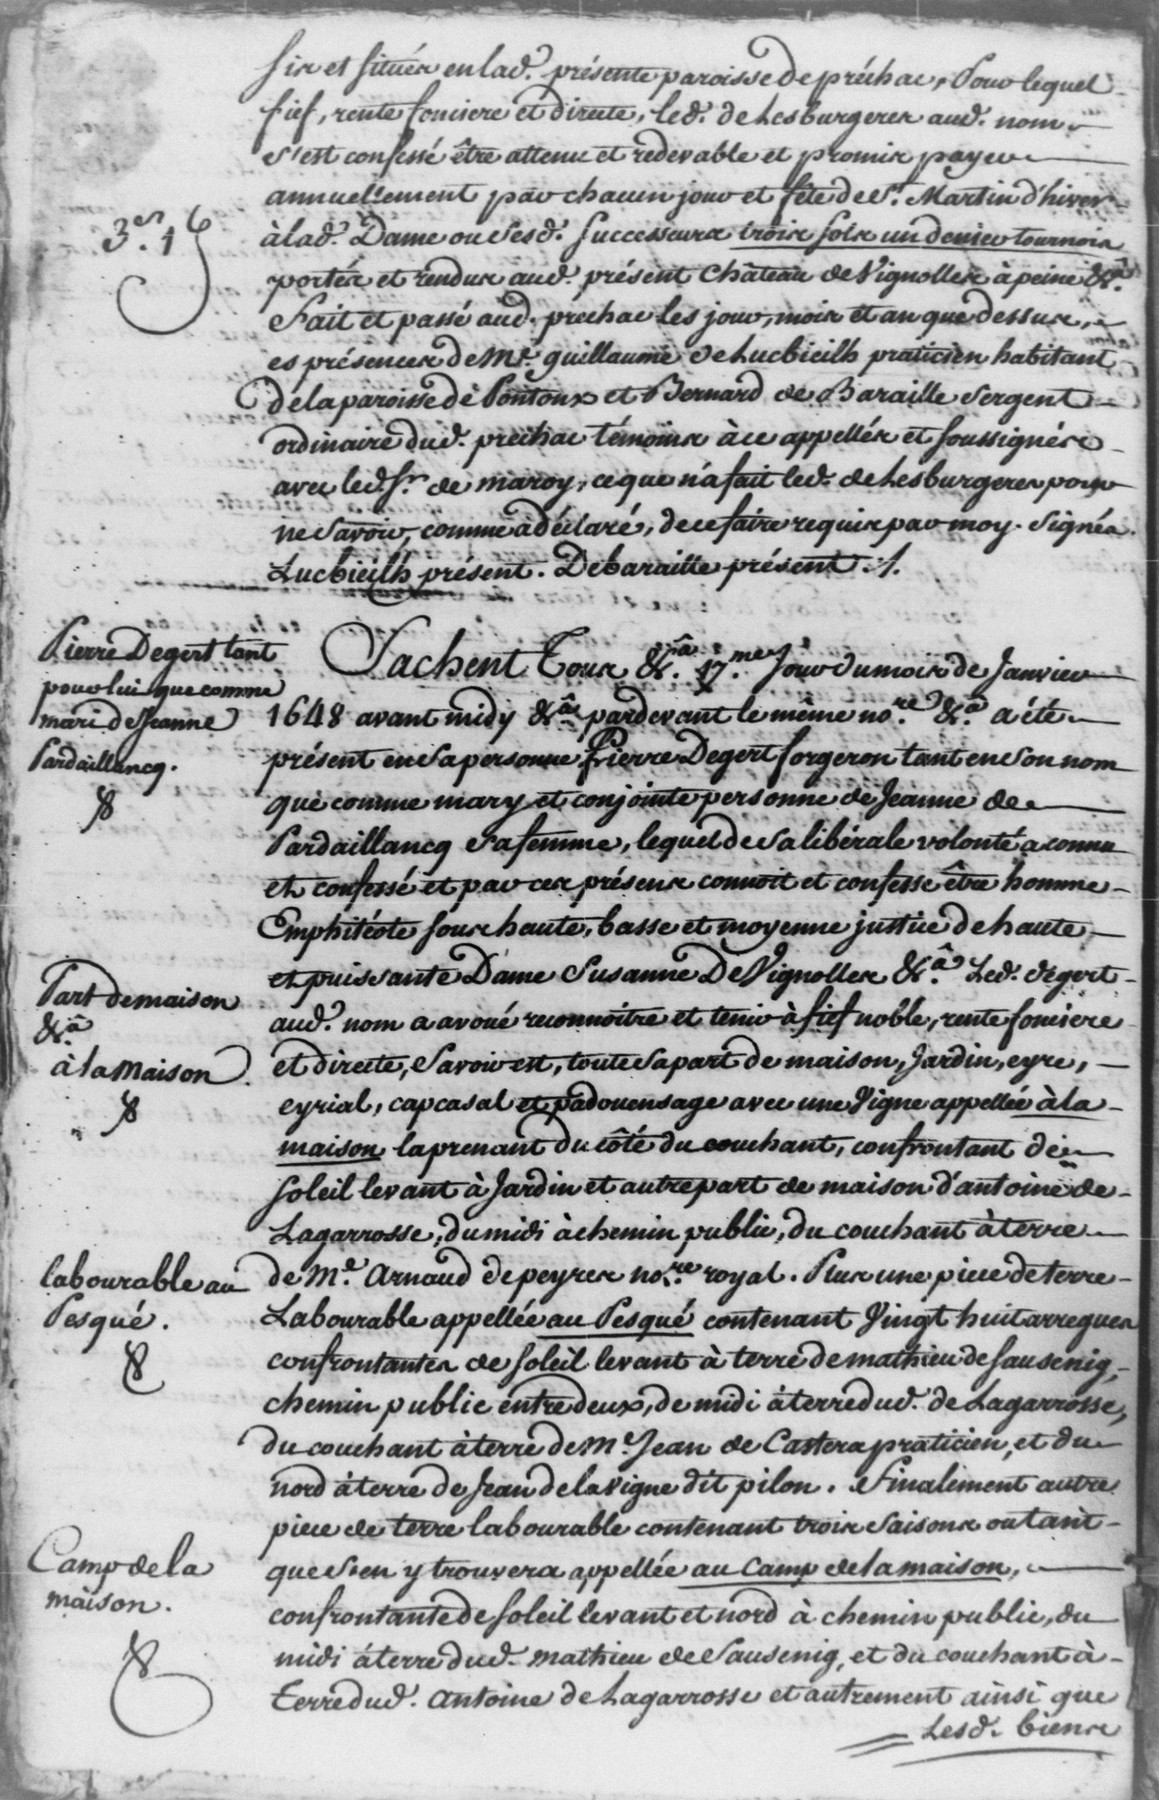 sis et situés en lad. présente paroisse de préchac, Pour lequel
fief, rente fonciere et directe, led. de Lesburgeres aud. nom
s'est confessé être attenu et redevable et promis payer
annuellement par chacun jour et fête de St. Martin d'hiver
3s. 1d
à lad. Dame ou sesd. Successeurs trois sols un denier tournois
portés et rendus aud. présent Château de Vignolles à peine &a.
Fait et passé aud. prechac les jour, mois et an que dessus,
es présences de Me. guillaume de Lucbieilh praticien habitant
de la paroisse de Pontoux et Bernard de Baraille sergent
ordinaire dud. prechac témoins à ce appellés et soussignés
avec led. sr. de maroy, ce que n'a fait led. de Lesburgeres pour
ne savoir, comme a déclaré, de ce faire requis par moy. Signés
Lucbieilh présent. Debaraille présent ./.
Pierre Degert tant
pour lui que comme
mari de Jeanne
Pardaillancq.
Sachent Tous &a. 17.me Jour du mois de Janvier
1648 avant midy &a pardevant le même no.re &a a été
présent en sa personne Pierre Degert forgeron tant en son nom
que comme mary et conjointe personne de Jeanne de
Pardaillancq sa femme, lequel de sa libérale volonté a connu
et confessé et par ces présens connoit et confesse être homme
Emphitéote sous haute, basse et moyenne justice de haute
et puissante Dame Susanne De Vignolles &a. Led. degert
Part de maison
&a
à la maison.
aud. nom a avoué reconnoitre et tenir à fief noble, rente fonciere
et directe, Savoir est, toute sa part de maison, Jardin, eyre,
eyrial, capcasal et padouensage avec une Vigne appellée à la
maison la prenant du côté du couchant, confrontant de
soleil levant à Jardin et autre part de maison d'antoine de
Lagarrosse, du midi à chemin public, du couchant à terre
labourable au
Pesqué.
de Me. Arnaud depeyres no.re royal. Plus une piece de terre
Labourable appellée au Pesqué contenant Vingt huit arregues
confrontantes de soleil levant à terre de mathieu de Sausenig,
chemin public entre deux, de midi à terre dud. de Lagarrosse,
du couchant à terre de Me. Jean de Castera praticien, et du
nord à terre de Jean de lavigne dit pilon. Finalement autre
piece de terre labourable contenant trois saisons ou tant
Camp de la
maison.
que s'en y trouvera appellée au Camp de la maison,
confrontante de soleil levant et nord à chemin public, du
midi à terre dud. mathieu de Sausenig, et du couchant à
terre dud. antoine de Lagarrosse et autrement ainsi que
Lesd. biens